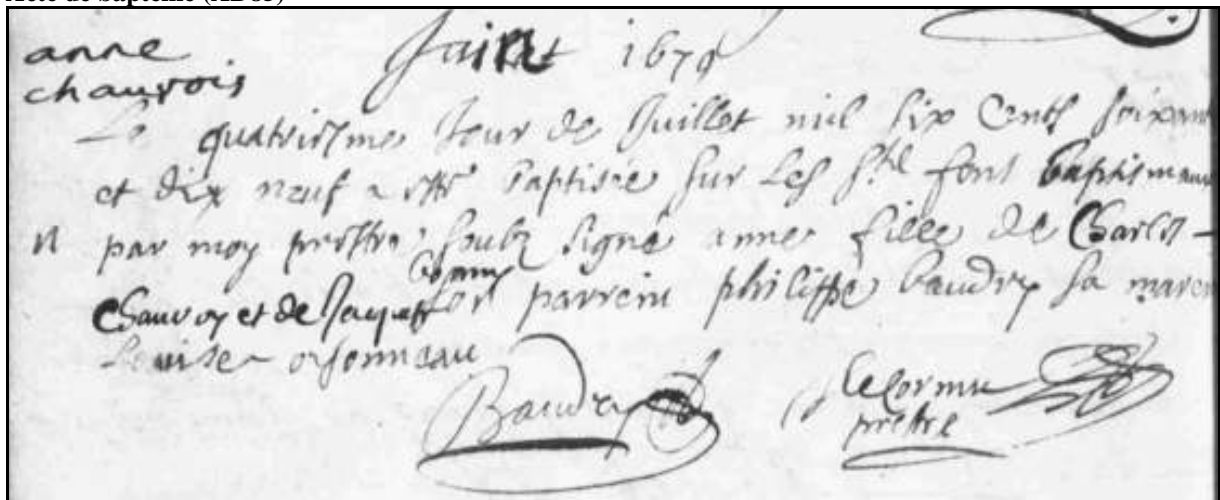 anne
chauvois
Juillet 1679
Le quatriesme Jour de Juillet mil six Cents soixan
et dix neuf a este baptisée sur Les Stes fons baptismaux
n par moy prestre soubz signé anne fille de Charles
Chauvoy et de Jacquette parrein philippe baudry sa marein
Louise
Baudry
Lecormu
prestre